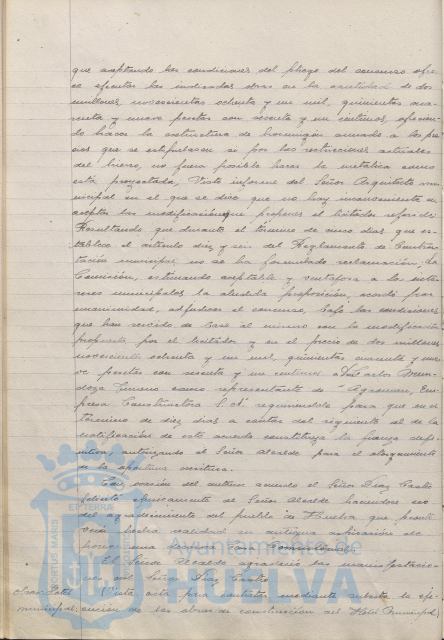 que aceptando las condiciones del pliego del concurso ofre-
ce efectuar las indicadas obras en la cantidad de dos
millones, novecientas ochenta y un mil, quinientas cua-
renta y nueve pesetas con sesenta y un centimos, ofrecien-
do hacer la estructura de hormigón armado a los pre-
cios que se estipulasen si por las restricciones actuales
del hierro, no fuera posible hacer la metálica como
está proyectada, Visto informe del Señor Arquitecto mu-
nicipal en el que se dice que no hay inconveniente en
aceptar las modificaciones que propone el licitador referido
Resultando que durante el termino de cinco dias que es-
tablece el artículo diez y seis del Reglamento de Contra-
tación municipal no se ha formulado reclamación, La
Comisión, estimando aceptable y ventajosa a los inte-
reses municipales la aludida proposición, acordó por
unanimidad, adjudicar el concurso, bajo las condiciones
que han servido de base al mismo con la modificación
propuesta por el licitador y en el precio de dos millones
novecientas ochenta y un mil, quinientas cuarenta y nue-
ve pesetas con sesenta y un centimos a Carlos Men-
doza Gimeno como representante de "Agroman, Em-
presa Constructora S.A." requiriendole para que en el
termino de diez dias a contar del siguiente al de la
notificación de este acuerdo constituya la fianza defi-
nitiva, autorizando al Señor Alcalde para el otorgamiento
de la oportuna escritura.
Con ocasión del anterior acuerdo el Señor Diaz Castro
felicitó efusivamente al Señor Alcalde haciendose eco
del agradecimiento del pueblo de Huelva, que pronto
verá hecha realidad su antigua aspiración de
El Señor Alcalde agradeció las manifestacio-
nes del Señor Diaz Castro
Vista acta para contratar mediante subasta la eje-
municipal. cución de las obras de construcción del Hotel Municipal,
Ayuntamiento de
HUELVA
PORTUS MARIS
ET TERRÆ